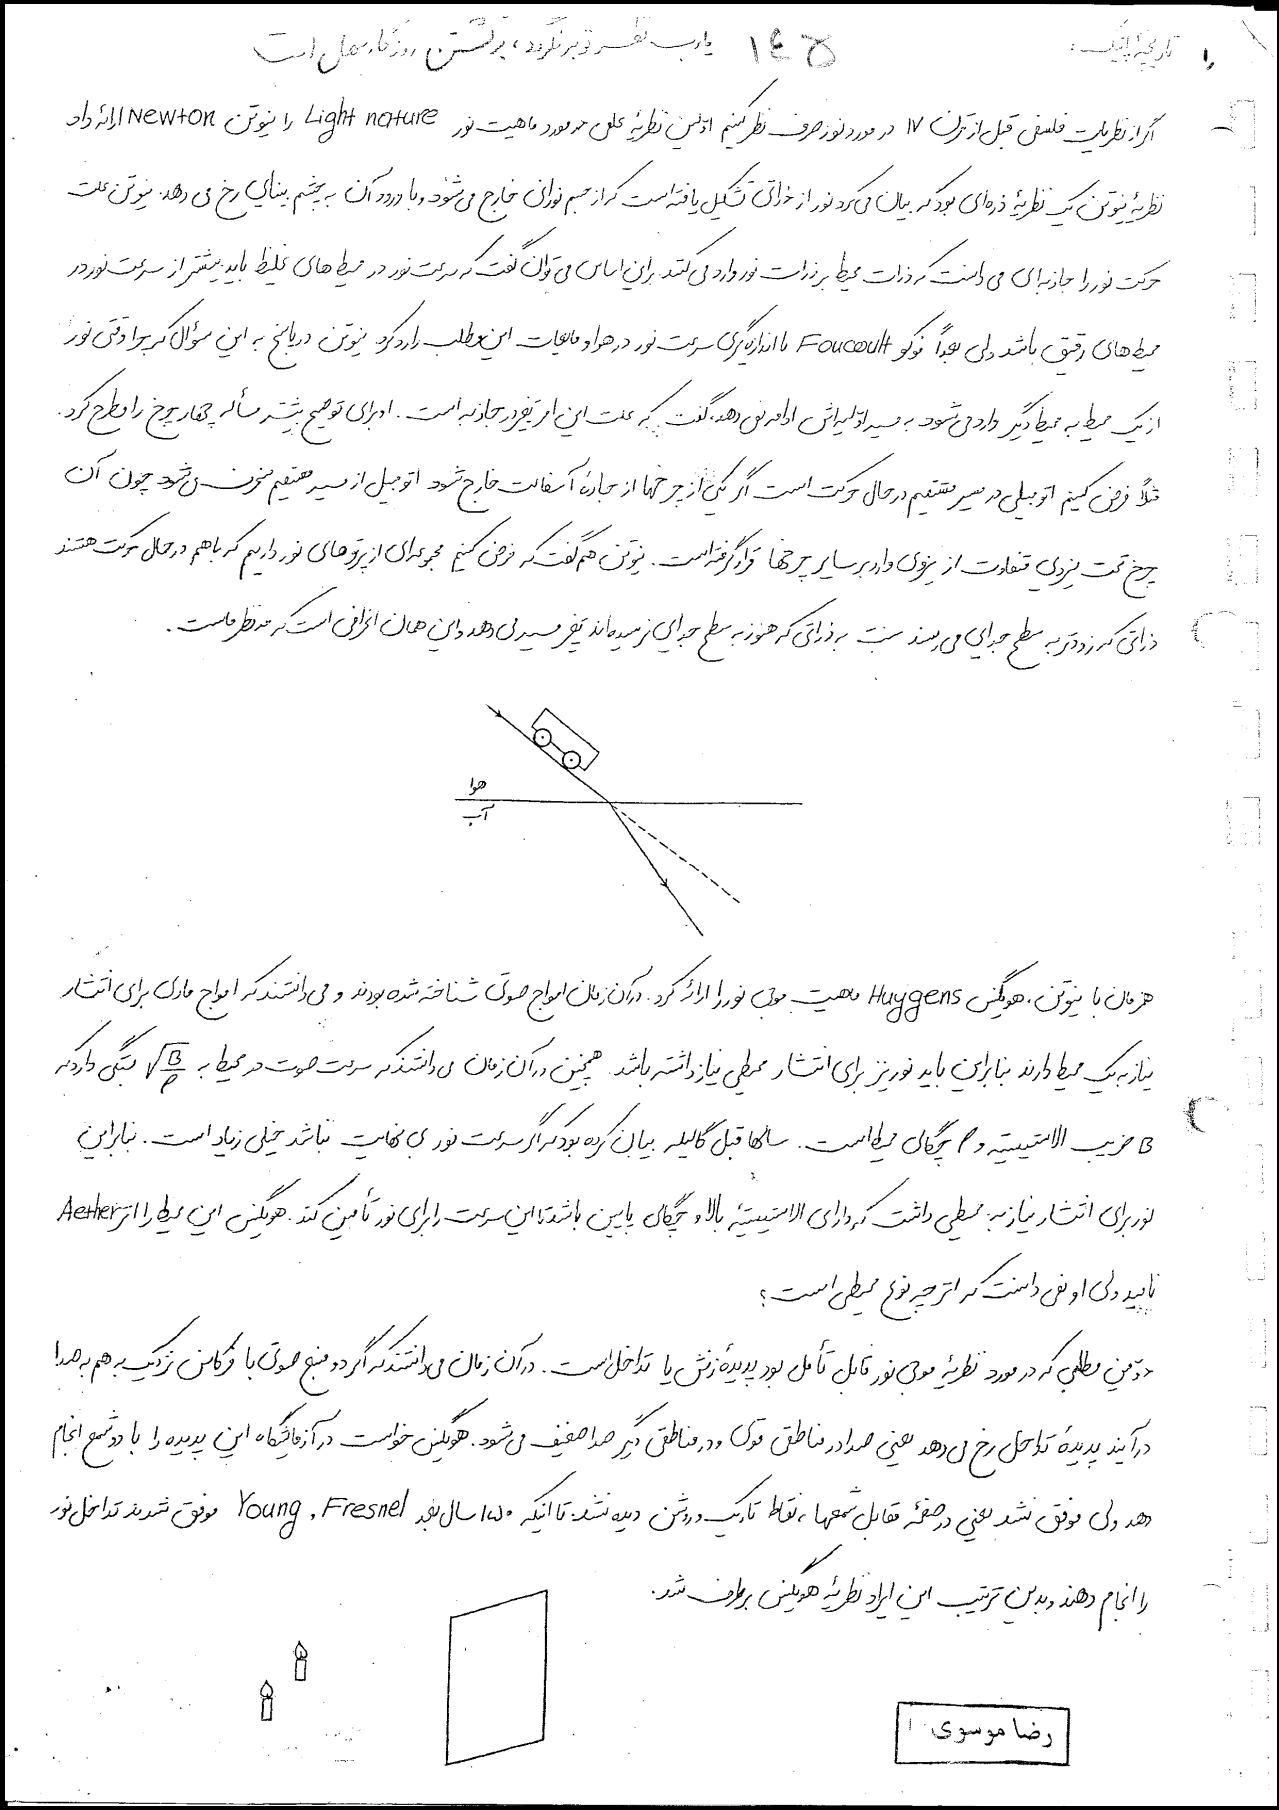 تاریخچهٔ اپتیک:
۱۴۵ یا رب نظر تو برنگردد، برگشتن روزگار سهل است
اگر از نظریات فلسفی قبل از قرن ۱۷ در مورد نور صرف نظر کنیم اولین نظریهٔ علمی در مورد ماهیت نور Light nature را نیوتن Newton ارائه داد
نظریهٔ نیوتن یک نظریهٔ ذره‌ای بود که بیان می‌کرد نور از ذراتی تشکیل یافته است که از جسم نورانی خارج می‌شود و با ورود آن به چشم بینایی رخ می‌دهد. نیوتن علت
حرکت نور را جاذبه‌ای می‌دانست که ذرات محیط بر ذرات نور وارد می‌کنند. براین اساس می‌توان گفت که سرعت نور در محیط‌های غلیظ باید بیشتر از سرعت نور در
محیط‌های رقیق باشد ولی بعداً فوکو Foucault با اندازه‌گیری سرعت نور در هوا و مایعات این مطلب را رد کرد. نیوتن در پاسخ به این سؤال که چرا وقتی نور
از یک محیط به محیط دیگر وارد می‌شود به مسیر اولیه‌اش ادامه نمی‌دهد، گفت که علت این امر تغییر در جاذبه است. او برای توضیح بیشتر مسأله چهار چرخ را مطرح کرد.
مثلاً فرض کنیم اتومبیلی در مسیر مستقیم در حال حرکت است اگر یکی از چرخها از جادهٔ آسفالت خارج شود اتومبیل از مسیر مستقیم منحرف می‌شود چون آن
چرخ تحت نیروی متفاوت از نیروی وارد بر سایر چرخها قرار گرفته است. نیوتن هم گفت که فرض کنیم مجموعه‌ای از پرتوهای نور داریم که با هم در حال حرکت هستند
ذراتی که زودتر به سطح جدایی می‌رسند نسبت به ذراتی که هنوز به سطح جدایی نرسیده‌اند تغییر مسیر می‌دهد و این همان انحرافی است که مد نظر ماست.
هوا
آب
همزمان با نیوتن، هویگنس Huygens ماهیت موجی نور را ارائه کرد. در آن زمان امواج صوتی شناخته شده بودند و می‌دانستند که امواج مادی برای انتشار
نیاز به یک محیط دارند بنابراین باید نور نیز برای انتشار محیطی نیاز داشته باشد. همچنین در آن زمان می‌دانستند که سرعت صوت در محیط به √(B/ρ) بستگی دارد که
B ضریب الاستیسیته و ρ چگالی محیط است. سالها قبل گالیله بیان کرده بود که اگر سرعت نور بی نهایت نباشد خیلی زیاد است. بنابراین
نور برای انتشار نیاز به محیطی داشت که دارای الاستیسیتهٔ بالا و چگالی پایین باشد تا این سرعت را برای نور تأمین کند. هویگنس این محیط را اتر Aether
نامید ولی او نمی‌دانست که اتر چه نوع محیطی است؟
دومین مطلبی که در مورد نظریهٔ موجی نور قابل تأمل بود پدیدهٔ زنش یا تداخل است. در آن زمان می‌دانستند که اگر دو منبع صوتی با فرکانس نزدیک به هم به صدا
درآیند پدیدهٔ تداخل رخ می‌دهد یعنی صدا در مناطقی قوی و در مناطقی دیگر صدا ضعیف می‌شود. هویگنس خواست در آزمایشگاه این پدیده را با دو شمع انجام
دهد ولی موفق نشد یعنی در صفحهٔ مقابل شمعها، نقاط تاریک و روشن دیده نشد. تا اینکه ۱۵۰ سال بعد Young , Fresnel موفق شدند تداخل نور
را انجام دهند و بدین ترتیب این ایراد نظریهٔ هویگنس برطرف شد.
رضا موسوی